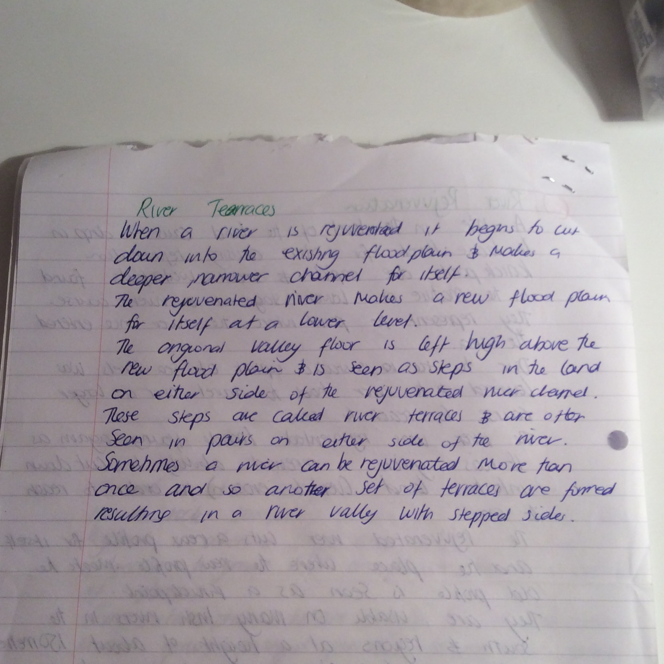 River Terraces
When a river is rejuvented it begins to cut
down into the existing floodplain & makes a
deeper, narrower channel for itself.
The rejuvenated river makes a new flood plain
for itself at a lower level.
The origional valley floor is left high above the
new flood plain & is seen as steps in the land
on either side of the rejuvenated river channel.
These steps are called river terraces & are often
seen in pairs on either side of the river.
Sometimes a river can be rejuvenated more than
once and so another set of terraces are formed
resulting in a river valley with stepped sides.